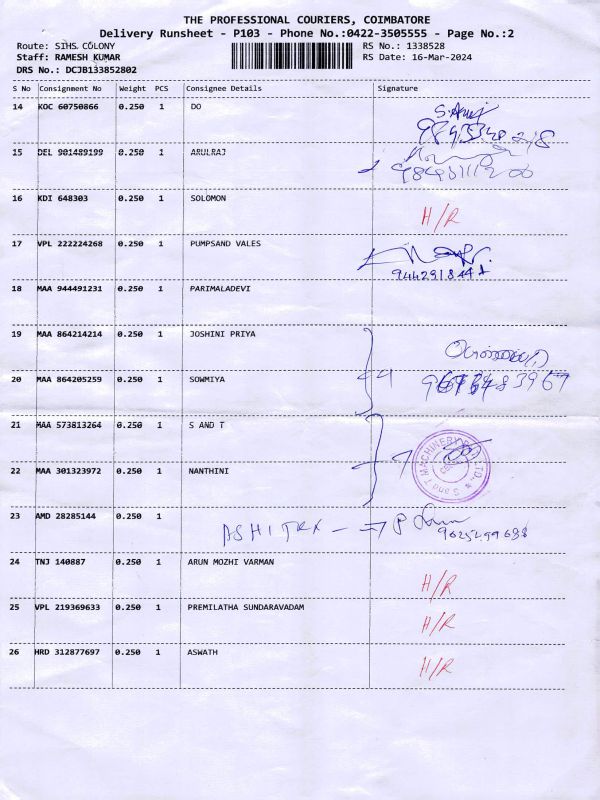 THE PROFESSIONAL COURIERS, COIMBATORE
Delivery Runsheet - P103 - Phone No.:0422-3505555 - Page No.:2
Route: SIHS COLONY RS No.: 1338528
Staff: RAMESH KUMAR RS Date: 16-Mar-2024
DRS No.: DCJB133852802
S No Consignment No Weight PCS Consignee Details Signature
14 KOC 60750866 0.250 1 DO
15 DEL 901489199 0.250 1 ARULRAJ
16 KDI 648303 0.250 1 SOLOMON H/R
17 VPL 222224268 0.250 1 PUMPSAND VALES
18 MAA 944491231 0.250 1 PARIMALADEVI
19 MAA 864214214 0.250 1 JOSHINI PRIYA
20 MAA 864205259 0.250 1 SOWMIYA
21 MAA 573813264 0.250 1 S AND T
22 MAA 301323972 0.250 1 NANTHINI
S and T MACHINERY LTD.,
23 AMD 28285144 0.250 1
24 TNJ 140887 0.250 1 ARUN MOZHI VARMAN H/R
25 VPL 219369633 0.250 1 PREMILATHA SUNDARAVADAM H/R
26 HRD 312877697 0.250 1 ASWATH H/R